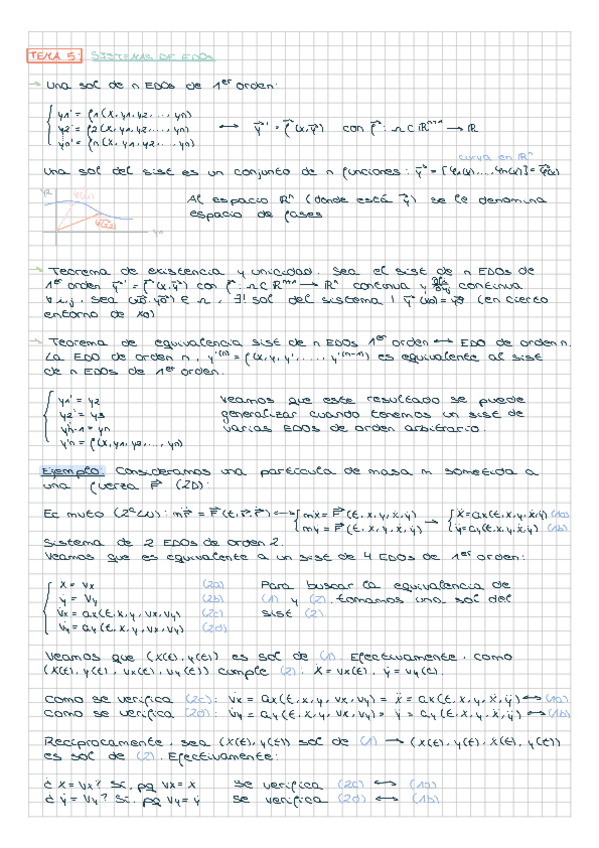 TEMA 5: SISTEMAS DE EDOs
→ Una sol de n EDOs de 1er orden:
y1' = f1(x, y1, y2, ..., yn)
y2' = f2(x, y1, y2, ..., yn) ↔ y⃗' = f⃗(x, y⃗) con f⃗: Ω ⊂ ℝⁿ⁺¹ → ℝ
yn' = fn(x, y1, y2, ..., yn)
curva en ℝⁿ
Una sol del sist es un conjunto de n funciones: y⃗ = [φ1(x), ..., φn(x)] = φ⃗(x)
Al espacio ℝⁿ (donde está y⃗) se le denomina
espacio de fases
→ Teorema de existencia y unicidad. Sea el sist de n EDOs de
1er orden y⃗' = f⃗(x, y⃗) con f⃗: Ω ⊂ ℝⁿ⁺¹ → ℝⁿ continua y ∂fi/∂yj continua
∀ i, j. Sea (x0, y⃗0) ∈ Ω, ∃! sol del sistema | y⃗(x0) = y⃗0 (en cierto
entorno de x0)
→ Teorema de equivalencia sist de n EDOs 1er orden ↔ EDO de orden n.
La EDO de orden n, y⁽ⁿ⁾ = f(x, y, y', ..., y⁽ⁿ⁻¹⁾) es equivalente al sist
de n EDOs de 1er orden.
y1' = y2 Veamos que este resultado se puede
y2' = y3 generalizar cuando tenemos un sist de
y'n-1 = yn varias EDOs de orden arbitrario.
y'n = f(x, y1, y2, ..., yn)
Ejemplo. Consideramos una partícula de masa m sometida a
una fuerza F⃗ (2D):
Ec mvto (2ª LN): m r̈ = F⃗(t, r⃗, ṙ) ↔ { mẍ = F⃗(t, x, y, ẋ, ẏ) → { ẍ = ax(t, x, y, ẋ, ẏ) (1a)
mÿ = F⃗(t, x, y, ẋ, ẏ) ÿ = ay(t, x, y, ẋ, ẏ) (1b)
Sistema de 2 EDOs de orden 2.
Veamos que es equivalente a un sist de 4 EDOs de 1er orden:
ẋ = vx (2a) Para buscar la equivalencia de
ẏ = vy (2b) (1) y (2), tomamos una sol del
v̇x = ax(t, x, y, vx, vy) (2c) sist (2).
v̇y = ay(t, x, y, vx, vy) (2d)
Veamos que (x(t), y(t)) es sol de (1). Efectivamente, como
(x(t), y(t), vx(t), vy(t)) cumple (2): ẋ = vx(t), ẏ = vy(t).
Como se verifica (2c): v̇x = ax(t, x, y, vx, vy) = ẍ = ax(t, x, y, ẋ, ẏ) ↔ (1a)
Como se verifica (2d): v̇y = ay(t, x, y, vx, vy) = ÿ = ay(t, x, y, ẋ, ẏ) ↔ (1b)
Recíprocamente, sea (x(t), y(t)) sol de (1) → (x(t), y(t), ẋ(t), ẏ(t))
es sol de (2). Efectivamente:
¿ẋ = vx? Sí, pq vx = ẋ se verifica (2c) ↔ (1a)
¿ẏ = vy? Sí, pq vy = ẏ se verifica (2d) ↔ (1b)